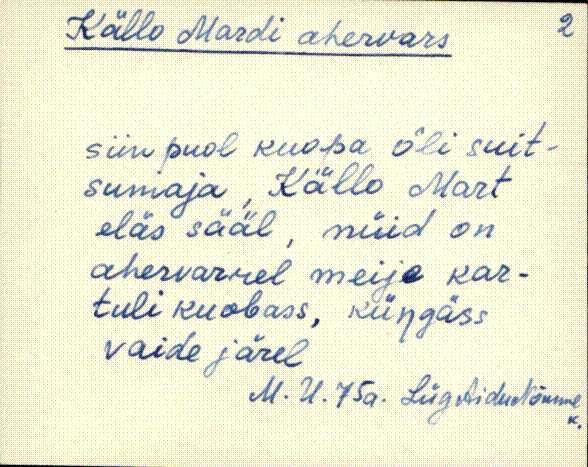 Källo Mardi ahervars 2
siinpuol kuopa õli suit-
sumaja, Källo Mart
eläs sääl, nüid on
ahervarrel meije kar-
tuli kuobass, küŋgäss
vaide järel
M. U. 75a. Lüg Aidu Nõmme
k.